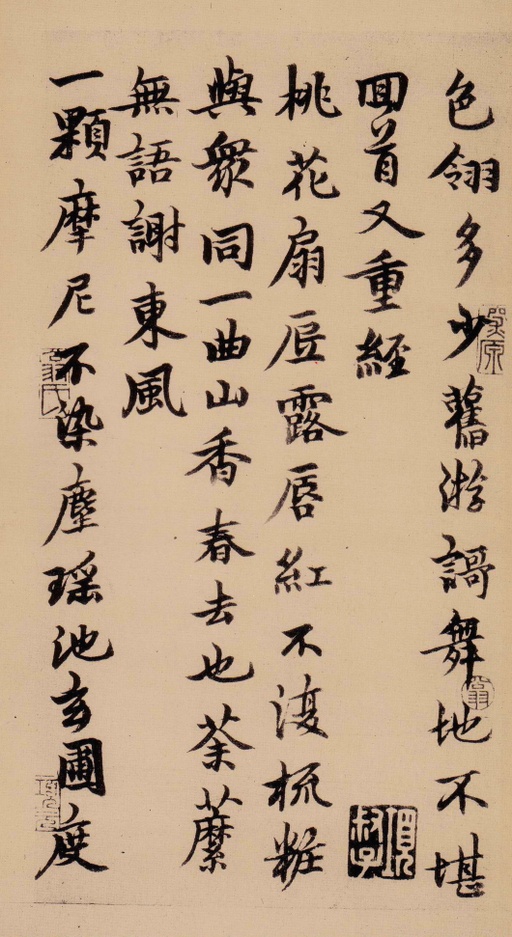 色翎多少舊游謌舞地不堪
回首又重經
桃花扇底露唇紅不復梳粧
與眾同一曲山香春去也荼蘼
無語謝東風
一顆摩尼不染塵瑤池玄圃度